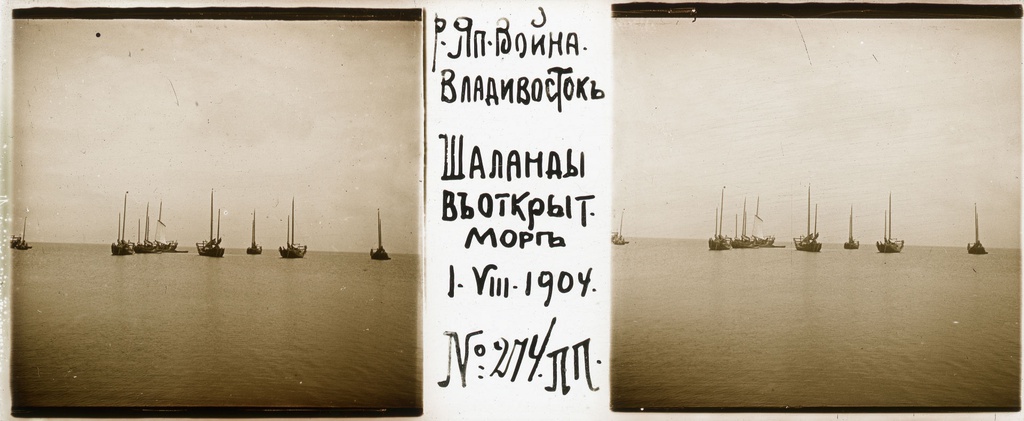 Р. Яп. Война.
Владивостокъ
Шаланды
въ открыт.
морѣ
1. VIII. 1904.
№: 274/ПП.